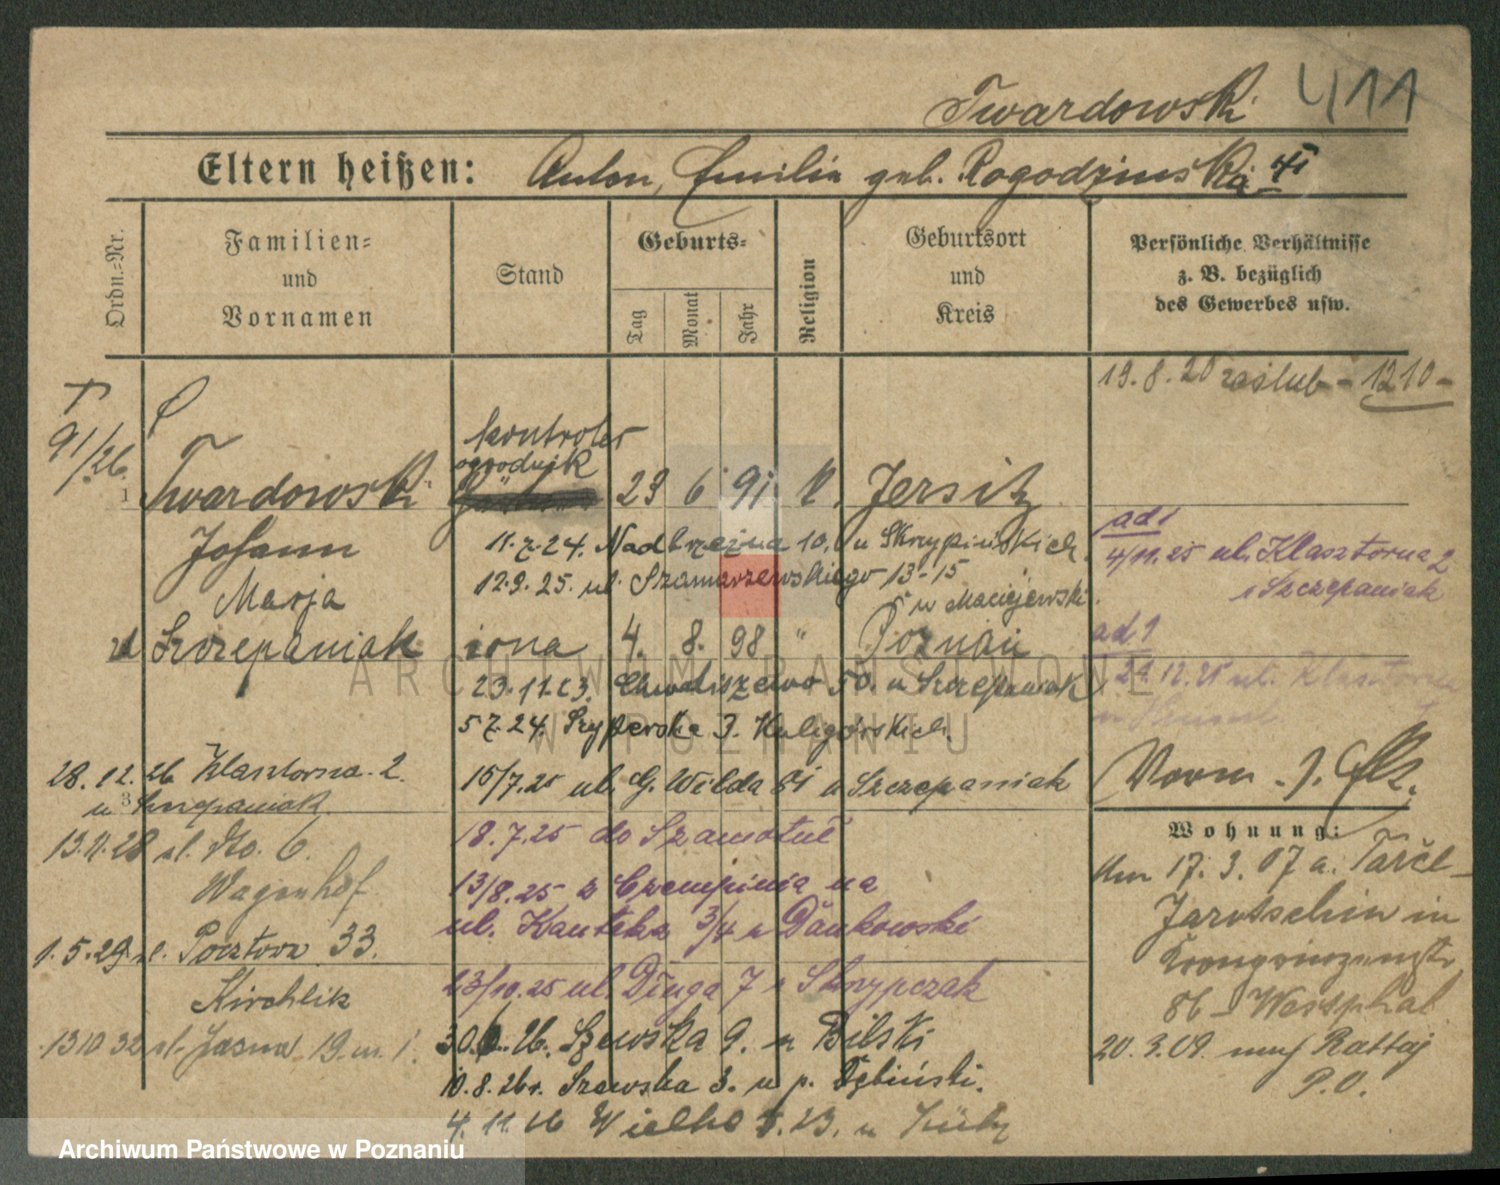 Twardowski 411
Eltern heißen: Anton, Emilia geb. Rogodzinska
Ordn.=Nr.
Familien=
und
Vornamen
Stand
Geburts=
Tag
Monat
Jahr
Religion
Geburtsort
und
Kreis
Persönliche Verhältnisse
z. B. bezüglich
des Gewerbes usw.
19.8.20 zaślub - 1210 -
91/26.
kontroler
ogrodnik
1 Twardowski 23 6 91 k. Jersitz
Johann
11.7.24. Nadbrzeżna 10. u Skrzypińskich
ad 1
4/11.25 ul. Klasztorna 2
12.9.25. ul. Szamarzewskiego 13-15
u Szczepaniak
Marja
u Maciejewski
Szczepaniak żona 4. 8. 98 " Poznań
ad 1
23.11.23. 50. u Szczepaniak
21.12.25 ul. Klasztorna
5.7.24. Szyperska 3. Kuligórskich
28.12.26 Klasztorna 2.
u Szczepaniak
15/7.25 ul. G. Wilda 81 u Szczepaniak
Vorm. J.
18.7.25 do Szamotuł
Wohnung:
13.4.28 ul. dto. 6.
Wagenhof
13/8.25 z Czempinia na
ul. Kanteka 3/4 u Dankowski
Am 17.3.07 a.
Jarotschin in
1.5.29. ul. Pocztowa 33.
Kirchlik
23/10.25 ul. Długa 7 u Skrzypczak
86 - Westphal
13 10 32 ul. Jasna 19. m. 1.
30.6.26. Szewska 9. u Bilski
20.3.09. nach Rattaj
P.O.
10.8.26 r. Szewska 3. u p. Dębiński.
4.11.26 Wielka 23. u
ARCHIWUM PAŃSTWOWE
W POZNANIU
Archiwum Państwowe w Poznaniu